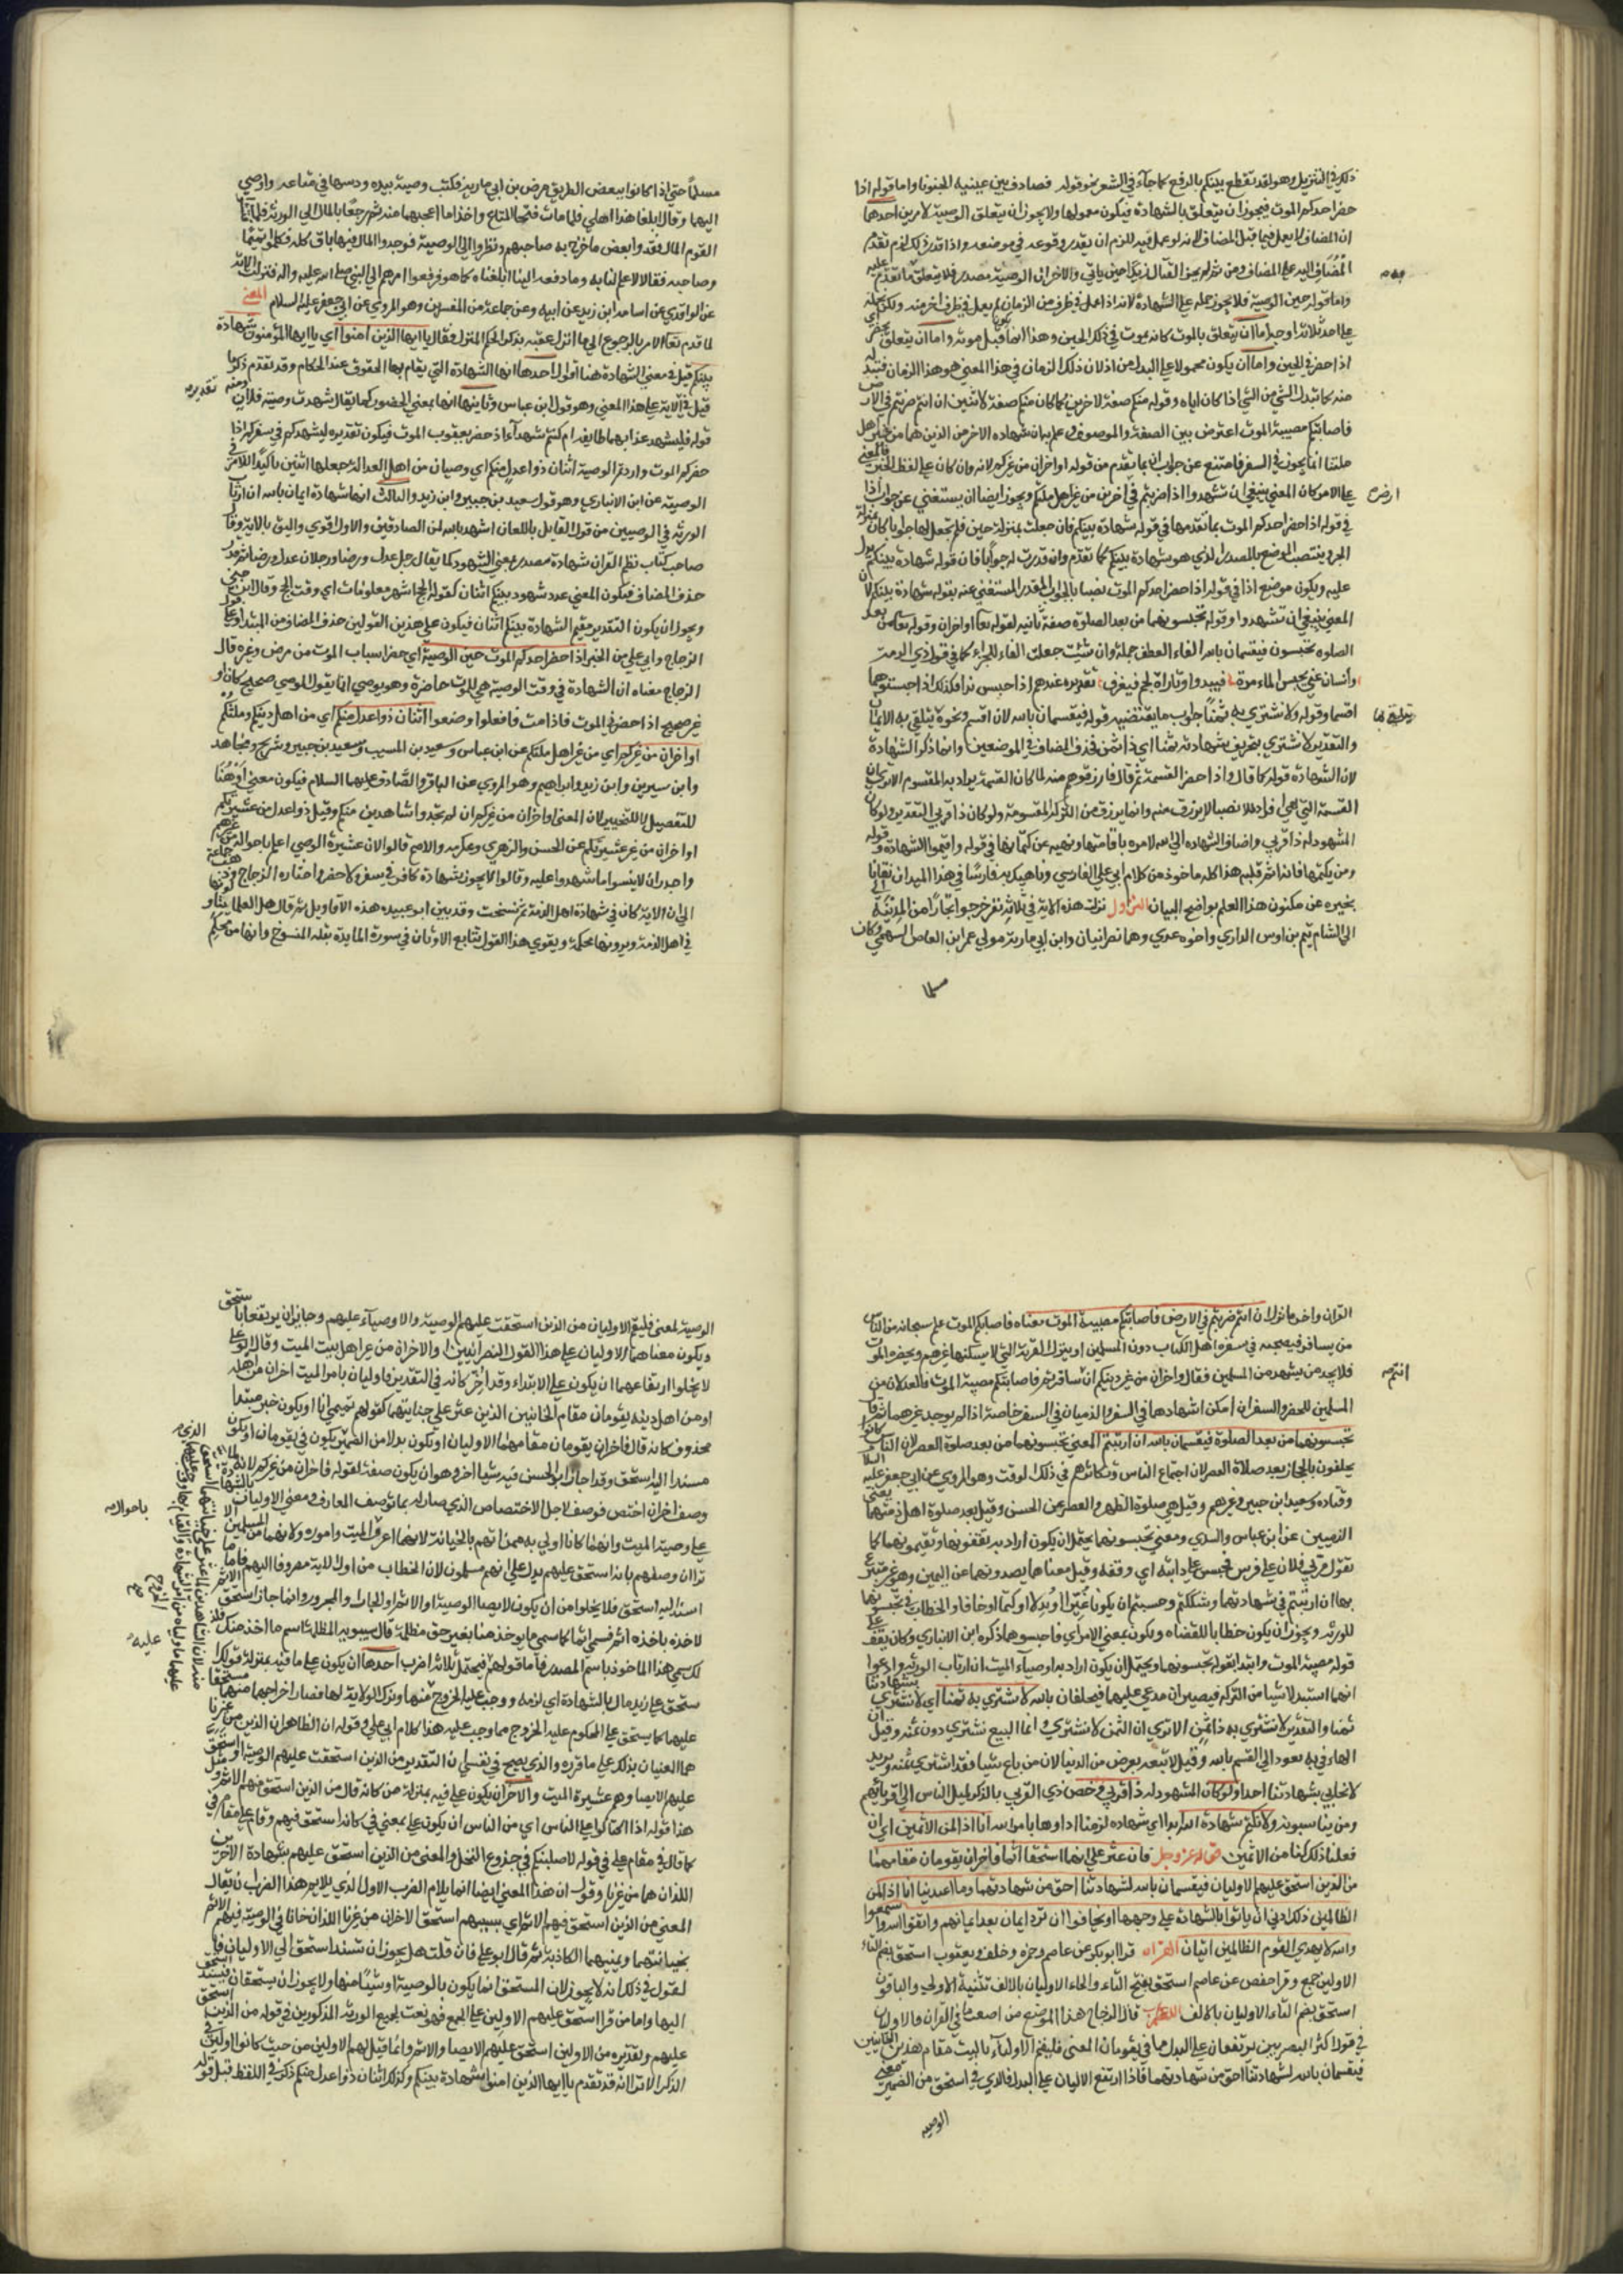 ذلك في التنزيل وهو لقد تقطع بينكم بالرفع كما جاء في الشعر نحو قوله فصادف بين عينيه الجبوبا واما قوله اذا
حضر احدكم الموت فيجوز ان يتعلق بالشهادة فيكون معمولها ولا يجوز ان يتعلق بالوصية لامرين احدهما
ان المضاف اليه لا يعمل فيما قبل المضاف لانه لو عمل فيه للزم ان يقدر وقوعه في موضعه واذا قدر ذلك لزم تقدم
المضاف اليه على المضاف ومن ثم لم يجز القتال زيدا حين ياتي والاخر ان الوصية مصدر فلا يتعلق ما تقدم عليه
واما قوله حين الوصية فلا يجوز حمله على الشهادة لانه اذا عمل في ظرف من الزمان لم يعمل في ظرف اخر منه ولكن يحمله
على احد ثلاثة اوجه اما ان يتعلق بالموت كانه يموت في ذلك الحين وهذا انما يكون قبل موته واما ان يتعلق بحضر اي
اذا حضر في الحين واما ان يكون محمولا على البدل من اذا لان ذلك الزمان في هذا المعنى هو هذا الزمان فتبدله
منه كما تبدل الشيء من الشيء اذا كان اياه وقوله منكم صفة لاخرين كما كان منكم صفة لاثنين ان انتم ضربتم في الارض
فاصابتكم مصيبة الموت اعتراض بين الصفة والموصوف وعلم به ان شهادة الاخرين الذين هما من غير اهل
ملتنا انما يجوز في السفر فاستغنى عن جواب ان بما تقدم من قوله او اخران من غيركم لانه وان كان على لفظ الخبر فالمعنى
على الامر كان المعنى ينبغي ان تشهدوا اذا ضربتم في الارض اخرين من غير اهل ملتكم ويجوز ايضا ان يستغني عن جواب اذا
في قوله اذا حضر احدكم الموت بما تقدمها في قوله شهادة بينكم فان جعلت بمنزلة حين فلم تجعل لها جوابا كان بمنزلة
الحين وينتصب الموضع بالمصدر الذي هو شهادة بينكم كما تقدم وان قدرت له جوابا فان قوله شهادة بينكم يدل
عليه ويكون موضع اذا في قوله اذا حضر احدكم الموت نصبا بالجواب المقدر المستغني عنه بقوله شهادة بينكم لان
المعنى ينبغي ان تشهدوا وقوله تحبسونهما من بعد الصلوة صفة ثانية لقوله تعالى او اخران وقوله تعالى من بعد
الصلوة تحبسون فيقسمان بالله الفاء لعطف جملة وان شئت جعلت الفاء للجزاء كما في قول ذي الرمة
وانسان عيني يحبس الماء مرة فيبدو وتاراة لجم فيغرق تقديره عندهم اذا حبس بدا فكذلك اذا حبستموهما
اقسما وقوله ولا نشتري به ثمنا جواب ما يقتضيه قوله فيقسمان بالله لان اقسم ونحوه يتلقى به الايمان
والتقدير لا نشتري بتحريف شهادته ثمنا اي ذا ثمن فحذف المضاف في الموضعين وانما ذكر الشهادة
لان الشهادة قوله كما قال واذا حضر القسمة ثم قال فارزقوهم منه لما كان القسمة يراد به المقسوم الا ترى ان
القسمة التي هي افراد الانصبا لا يرزق منه وانما يرزق من التركة المقسومة ولو كان ذا قربى التقدير ولو كان
المشهود له ذا قربى واضاف الشهادة الى الله لامره باقامتها ونهيه عن كتمانها في قوله واقيموا الشهادة وقوله
ومن يكتمها فانه اثم قلبه هذا كله ماخوذ عن كلام ابي علي الفارسي وناهيك به فارسا في هذا الميدان نقابا
يخبره عن مكنون هذا العلم بواضح البيان النزول نزلت هذه الاية في ثلاثة نفر خرجوا تجارا من المدينة
الى الشام تميم بن اوس الداري واخوه عدي وهما نصرانيان وابن ابي مارية مولى عمرو بن العاص السهمي وكان
مسلما
مسلما حتى اذا كانوا ببعض الطريق مرض بن ابي مارية فكتب وصية بيده ودسها في متاعه واوصى
اليهما وقال ابلغا هذا اهلي فلما مات فتحا المتاع واخذا ما اعجبهما منه ثم رجعا بالمال الى الورثة فلما فتش
القوم المال فقدوا بعض ما خرج به صاحبهم ونظروا الى الوصية فوجدوا المال فيها باق كله فكلموا تميما
وصاحبه فقالا لا علم لنا به وما دفعه الينا ابلغناه كما هو فرفعوا امرهم الى النبي صلى الله عليه واله فنزلت الاية
عن الواقدي عن اسامة ابن زيد عن ابيه وعن جماعة من المفسرين وهو المروي عن ابي جعفر عليه السلام المعنى
لما قدم تعالى الامر بالرجوع الى ما انزل عقبه بذكر الحكم المنزل فقال يا ايها الذين امنوا اي يا ايها المؤمنون شهادة
بينكم قيل في معنى الشهادة هنا اقوال احدها انها الشهادة التي يقام بها الحقوق عند الحكام وقد تقدم ذكر ما
قيل في الاية على هذا المعنى وهو قول ابن عباس وثانيها انها بمعنى الحضور كما يقال شهدت وصية فلان ومنه
تقديره
قوله فليشهد عذابهما طايفة ام كنتم شهدآء اذ حضر يعقوب الموت فيكون تقديره ليشهدكم في سفركم اذا
حضركم الموت واردتم الوصية اثنان ذوا عدل منكم اي وصيان من اهل العدالة جعلها اثنين تاكيدا للامر في
الوصية عن ابن الانباري وهو قول سعيد بن جبير وابن زيد والثالث انها شهادة ايمان بالله ان ارتاب
الورثة في الوصيين من قول القايل باللعان اشهد بالله لمن الصادقين والاول اقوى واليق بالاية وقال
صاحب كتاب نظم القران شهادة مصدر بمعنى الشهود كما يقال رجل عدل ورضا ورجلان عدل ورضا ثم قدر
حذف المضاف فيكون المعنى عدد شهود بينكم اثنان كقوله الحج اشهر معلومات اي وقت الحج وقال ابن جني
ويجوز ان يكون التقدير مقيم الشهادة بينكم اثنان فيكون على هذين القولين حذف المضاف من المبتدا وعلى قول
الزجاج وابي علي من الخبر اذا حضر احدكم الموت حين الوصية اي حضر اسباب الموت من مرض وغيره قال
الزجاج معناه ان الشهادة في وقت الوصية هي للموت حاضرة وهو يوصي انما يقول الموصي صحيحا كان او
غير صحيح اذا حضرني الموت فاذا مت فافعلوا وضعوا اثنان ذوا عدل منكم اي من اهل دينكم وملتكم
او اخران من غيركم اي من غير اهل ملتكم عن ابن عباس وسعيد بن المسيب وسعيد بن جبير وشريح ومجاهد
وابن سيرين وابن زيد وابراهيم وهو المروي عن الباقر والصادق عليهما السلام فيكون معنى او هنا
للتفصيل لا للتخيير لان المعنى او اخران من غيركم ان لم تجدوا شاهدين منكم وقيل ذوا عدل من عشيرتكم
او اخران من غير عشيرتكم عن الحسن والزهري وعكرمه والاصم قالوا لان عشيرة الموصي اعلم باحواله من غيرهم
واجدر ان لا ينسوا ما شهدوا عليه وقالوا لا يجوز شهادة كافر في سفر ولا حضر واختاره الزجاج وذهب جماعة
الى ان الاية كان في شهادة اهل الذمة ثم نسخت وقد بين ابو عبيد هذه الاقاويل ثم قال جل العلما يتاولونها
في اهل الذمة ويرونها محكمة ويقوي هذا القول تتابع الاثار في سورة المايدة بقلة المنسوخ وانها من محكم
القران واخر ما نزل ان انتم ضربتم في الارض فاصابتكم مصيبة الموت معناه فاصابكم الموت علم سبحانه من الناس
من يسافر فيصحبه في سفره اهل الكتاب دون المسلمين او ينزل القرية التي لا يسكنها غيرهم ويحضره الموت
فلا يجد من يشهده من المسلمين فقال او اخران من غير دينكم ان سافرتم فاصابتكم مصيبة الموت فالعدلان من
انتم
المسلمين للحضر والسفر ان امكن اشهادهما في السفر والذميان في السفر خاصة اذا لم يوجد غيرهما ثم قال
تحبسونهما من بعد الصلوة فيقسمان بالله ان ارتبتم المعنى تحبسونهما من بعد صلوة العصر لان الناس كانوا
يحلفون بالحجاز بعد صلاة العصر لان اجتماع الناس وتكاثرهم في ذلك الوقت وهو المروي عن ابي جعفر عليه السلام
وقتاده وسعيد ابن جبير وغيرهم وقيل هي صلوة الظهر والعصر عن الحسن وقيل بعد صلوة اهل ذمتهما يعني
الذميين عن ابن عباس والسدي ومعنى تحبسونهما يحتمل ان يكون اراد به تقفونهما وتقيمونهما كما
تقول مر بي فلان على فرس فحبس علي دابته اي وقفه وقيل معناه يصدونهما عن اليمين وهو غير مشرع
بها ان ارتبتم في شهادتهما وشككتم وحسبتم ان يكونا غيرا او بدلا او كتما او خانا والخطاب في تحبسونهما
للورثة ويجوز ان يكون خطابا للقضاه ويكون بمعنى الامر اي فاحبسوهما ذكره ابن الانباري وكان يقف على
قوله مصيبة الموت وابتدا بقوله تحبسونهما ويحتمل ان يكون اراد به اوصيآء الميت ان ارتاب الورثة وادعوا
انهما استبدا شيئا من التركة فيصيران مدعى عليهما فيحلفان بالله لا نشتري به ثمنا اي لا نشتري بشهادتنا
ثمنا والتقدير لا نشتري به ذا ثمن الا ترى ان الثمن لا يشترى وانما المبيع يشترى دون ثمنه وقيل ان
الهاء في به يعود الى القسم بالله وقيل لا نبيعه بعوض من الدنيا لان من باع شيئا فقد اشترى ثمنه ويريد
لا نحابي بشهادتنا احدا ولو كان المشهود له ذا قربى وخص ذي القربى بالذكر لميل الناس الى اقربائهم
ومن يناسبونه ولا نكتم شهادة الله اي شهادة لزمنا اداوها بامر الله انا اذا لمن الاثمين اي ان
فعلنا ذلك كنا من الاثمين قوله عز وجل فان عثر على انهما استحقا اثما فاخران يقومان مقامهما
من الذين استحق عليهم الاوليان فيقسمان بالله لشهادتنا احق من شهادتهما وما اعتدينا انا اذا لمن
الظالمين ذلك ادنى ان ياتوا بالشهادة على وجهها او يخافوا ان ترد ايمان بعد ايمانهم واتقوا الله واسمعوا
والله لا يهدي القوم الظالمين ايتان القراة قرا ابو بكر عن عاصم وحمزه وخلف ويعقوب استحق بضم التاء
الاولين جمع وقرا حفص عن عاصم استحق بفتح التاء والحاء الاوليان بالالف تثنية الاولى والباقون
استحق بضم التاء الاوليان بالالف الاعراب قال الزجاج هذا الموضع من اصعب ما في القران والاوليان
في قول اكثر البصريين يرتفعان على البدل مما في يقومان المعنى فليقم الاوليان بالميت مقام هذين الخائنين
فيقسمان بالله لشهادتنا احق من شهادتهما فاذا ارتفع الاوليان على البدل فالذي في استحق من الضمير معنى
الوصيه
الوصية المعنى فليقم الاوليان من الذين استحقت عليهم الوصية والا وصيآء عليهم وجايز ان يرتفعا باستحق
ويكون معناهما الاوليان على هذا القول النصرانيين والاخران من غير اهل بيت الميت وقال ابو علي
لا يخلوا ارتفاعهما ان يكون على الابتداء وقد اخر كانه في التقدير فاوليان بامر الميت اخران من اهله
او من اهل دينه يقومان مقام الخائنين الذين عثر على خيانتهما كقولهم تميمي انا او يكون خبر مبتدا
محذوف كانه قال فاخران يقومان مقامهما الاوليان او يكون بدلا من الضمير يكون في يقومان او يكون
مسندا اليه استحق وقد اجاز ابو الحسن فيه شيئا اخر وهو ان يكون صفة لقوله فاخران
وصف اخران اختص فوصف لاجل الاختصاص الذي صار له بما توصف المعارف ومعنى الاوليان
على وصية الميت وانهما كانا اولى به ممن اتهم بالخيانة لانهما اعرف بالميت واموره ولانهما من المسلمين
باحواله
ترا ان وصفهم بانه استحق عليهم يدل على انهم مسلمون لان الخطاب من اول الاية مصروف اليهم فاما
اسند اليه استحق فلا يخلوا من ان يكون الايصا او الوصية او الاثم او الجار والمجرور وانما جاز استحق الاثم
لاخذه باخذه اثم فسمي اثما كما سمي ما يوخذ منا بغير حق مظلمة قال سيبويه المظلمة اسم ما اخذ منك
لك سمي هذا الماخوذ باسم المصدر فاما قولهم فيحتمل ثلاثة اضرب احدها ان يكون على ما فيه بمنزلة قولك
عليه
استحق على زيد مال بالشهادة اي لزمه ووجب عليه الخروج منها وترك الولاية لها فصار اخراجهما منهما
عليهما كما يستحق على المحكوم عليه الخروج مما وجب عليه هذا كلام ابي علي وقوله ان الظاهران الذين من غيرنا
هما المعنيان بذلك على ما قرره والذي يصح في نفسي ان التقدير من الذين استحقت عليهم الوصية او استحق
عليهم الايصا وهم عشيرة الميت والاخر ان يكون على فيه بمنزلة من كانه قال من الذين استحق منهم الاثم ومثل
هذا قوله اذا اكتالوا على الناس اي من الناس ان يكون على بمعنى في كانه استحق فيهم وقام على مقام في
كما قام في مقام على في قوله لاصلبنكم في جذوع النخل والمعنى من الذين استحق عليهم بشهادة الاخرين
اللذان هما من غيرنا وقول ان هذا المعنى ايضا انما يلايم الضرب الاول الذي يلايم هذا الضرب ان يقال
المعنى من الذين استحق فيهم الاثم اي بسببهم استحق الاخران من غيرنا اللذان خانا في الوصية فيهم الاثم
بخيانتهما ويمينهما الكاذبة ثم قال ابو علي فان قلت هل يجوز ان تسند استحق الى الاوليان فا
لقول في ذلك انه لا يجوز لان المستحق انما يكون بالوصية او شيئا منها ولا يجوز ان يستحقان فيسند استحق
اليها واما من قرا استحق عليهم الاولين على الجمع فهو نعت لجميع الورثة المذكورين في قوله من الذين استحق
عليهم وتقديره من الاولين استحق عليهم الايصا والاثم وانما قيل لهم الاولين من حيث كانوا اولين في
الذكر الا ترا انه قد تقدم يا ايها الذين امنوا شهادة بينكم وكذلك اثنان ذوا عدل منكم ذكرا في اللفظ قبل قوله